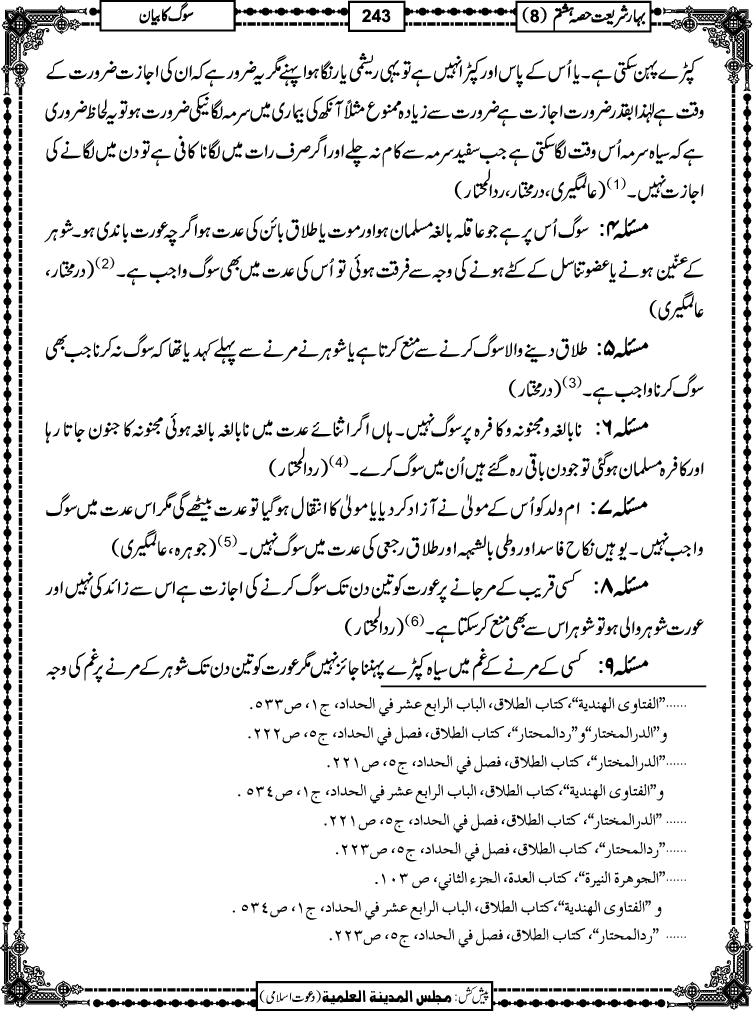 بہارِ شریعت حصہ ہشتم (8)
243
سوگ کا بیان
کپڑے پہن سکتی ہے۔ یا اُس کے پاس اور کپڑا نہیں ہے تو یہی ریشمی یا رنگا ہوا پہنے مگر یہ ضرور ہے کہ ان کی اجازت ضرورت کے
وقت ہے لہٰذا بقدرِ ضرورت اجازت ہے ضرورت سے زیادہ ممنوع مثلاً آنکھ کی بیماری میں سرمہ لگانیکی ضرورت ہو تو یہ لحاظ ضروری
ہے کہ سیاہ سرمہ اُس وقت لگا سکتی ہے جب سفید سرمہ سے کام نہ چلے اور اگر صرف رات میں لگانا کافی ہے تو دن میں لگانے کی
اجازت نہیں۔(1) (عالمگیری، درمختار، ردالمحتار)
مسئلہ ۴: سوگ اُس پر ہے جو عاقلہ بالغہ مسلمان ہو اور موت یا طلاق بائن کی عدت ہو اگرچہ عورت باندی ہو۔ شوہر
کے عنّین ہونے یا عضو تناسل کے کٹے ہونے کی وجہ سے فرقت ہوئی تو اُس کی عدت میں بھی سوگ واجب ہے۔(2) (درمختار،
عالمگیری)
مسئلہ ۵: طلاق دینے والا سوگ کرنے سے منع کرتا ہے یا شوہر نے مرنے سے پہلے کہدیا تھا کہ سوگ نہ کرنا جب بھی
سوگ کرنا واجب ہے۔(3) (درمختار)
مسئلہ ۶: نابالغہ و مجنونہ و کافرہ پر سوگ نہیں۔ ہاں اگر اثنائے عدت میں نابالغہ بالغہ ہوئی مجنونہ کا جنون جاتا رہا
اور کافرہ مسلمان ہوگئی تو جو دن باقی رہ گئے ہیں اُن میں سوگ کرے۔(4) (ردالمحتار)
مسئلہ ۷: ام ولد کو اُس کے مولیٰ نے آزاد کردیا یا مولیٰ کا انتقال ہوگیا تو عدت بیٹھے گی مگر اس عدت میں سوگ
واجب نہیں۔ یوہیں نکاح فاسد اور وطی بالشبہہ اور طلاق رجعی کی عدت میں سوگ نہیں۔(5) (جوہرہ، عالمگیری)
مسئلہ ۸: کسی قریب کے مرجانے پر عورت کو تین دن تک سوگ کرنے کی اجازت ہے اس سے زائد کی نہیں اور
عورت شوہر والی ہو تو شوہر اس سے بھی منع کرسکتا ہے۔(6) (ردالمحتار)
مسئلہ ۹: کسی کے مرنے کے غم میں سیاہ کپڑے پہننا جائز نہیں مگر عورت کو تین دن تک شوہر کے مرنے پر غم کی وجہ
......”الفتاوی الهندیة“، کتاب الطلاق، الباب الرابع عشر في الحداد، ج۱، ص۵۳۳.
و”الدرالمختار“و”ردالمحتار“، کتاب الطلاق، فصل في الحداد، ج۵، ص۲۲۲.
......”الدرالمختار“، کتاب الطلاق، فصل في الحداد، ج۵، ص۲۲۱.
و”الفتاوی الهندیة“،کتاب الطلاق، الباب الرابع عشر في الحداد، ج۱، ص۵۳٤.
...... ”الدرالمختار“، کتاب الطلاق، فصل في الحداد، ج۵، ص۲۲۱.
......”ردالمحتار“، کتاب الطلاق، فصل في الحداد، ج۵، ص۲۲۳.
......”الجوهرة النيرة“، کتاب العدة، الجزء الثاني، ص ۱۰۳.
و ”الفتاوی الهندیة“،کتاب الطلاق، الباب الرابع عشر في الحداد، ج۱، ص۵۳٤ .
...... ”ردالمحتار“، کتاب الطلاق، فصل في الحداد، ج۵، ص۲۲۳.
پیش کش: مجلس المدينة العلمية (دعوتِ اسلامی)